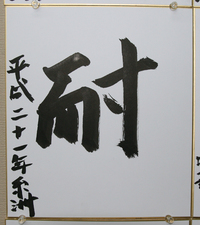 耐
平成二十一年